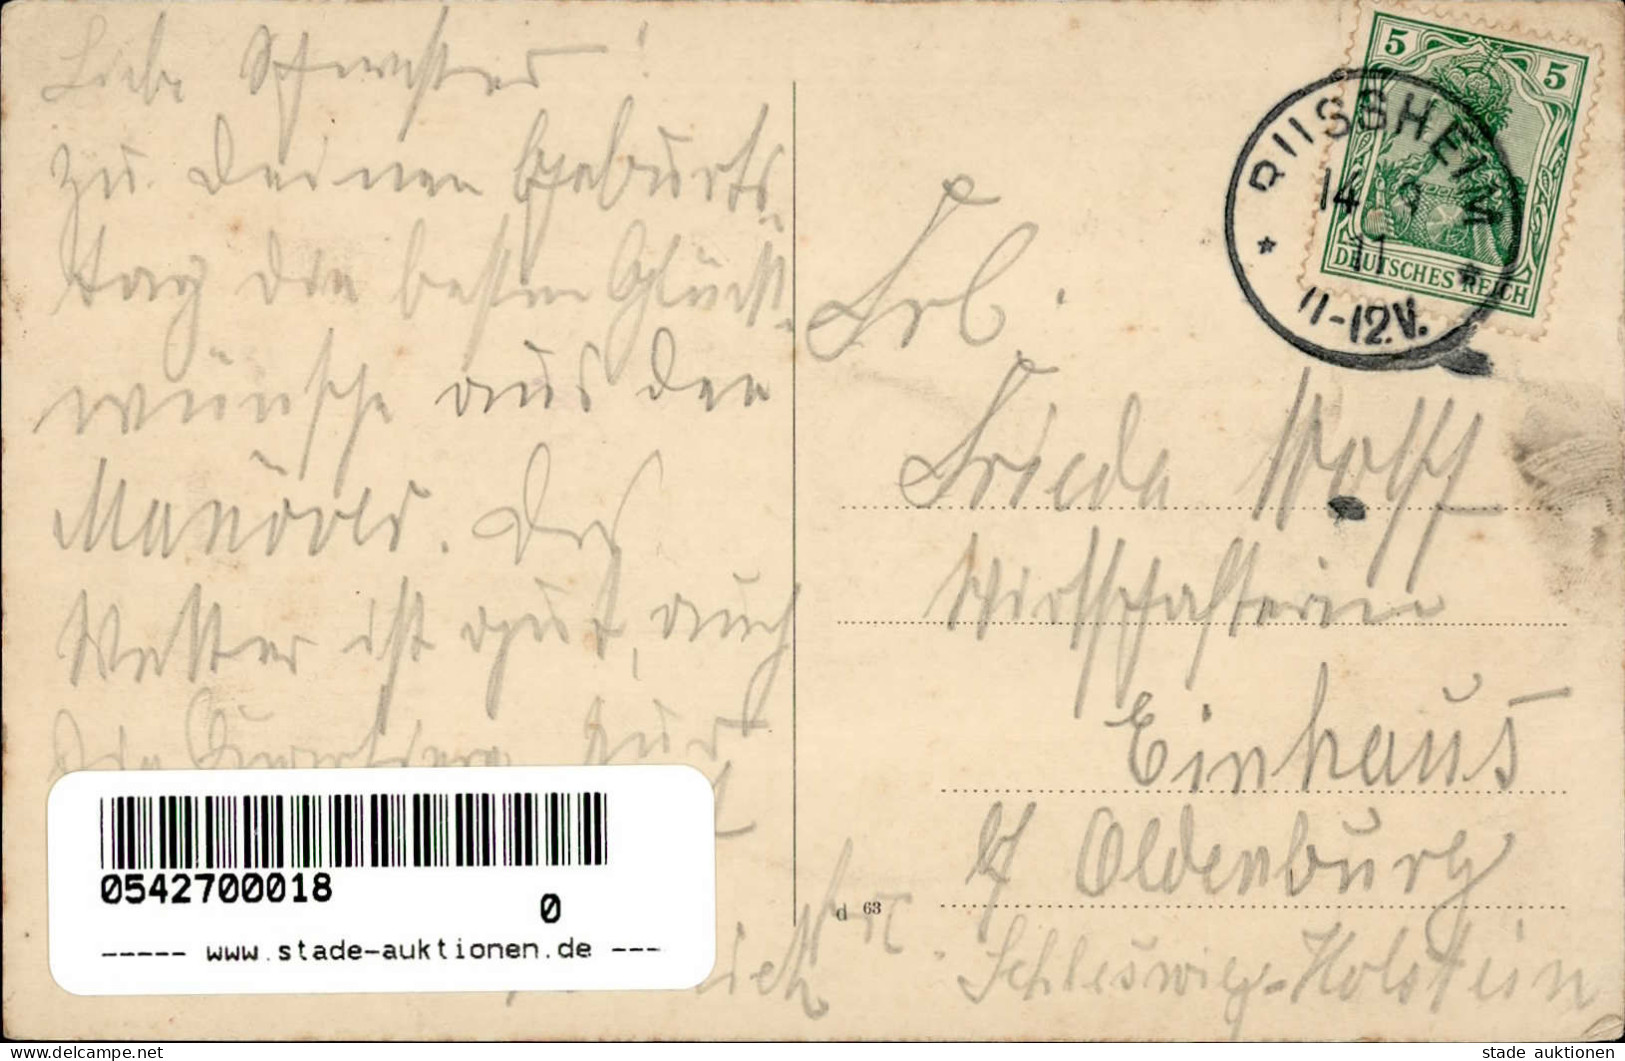 Liebe Schwester!
zu Deinen Geburts-
tag die besten Glück-
wünsche aus den
Manövrer. Das
Wetter ist gut, auch
die Quartiere
0542700018
0
----- www.stade-auktionen.de ---
5 5
DEUTSCHES REICH
RÜSSHEIM
14 9
11
11-12.V.
Frl.
Frieda Wolff
Wirtschafterin
Einhaus
b/ Oldenburg
Schleswig-Holstein
d 63
www.delcampe.net
stade auktionen